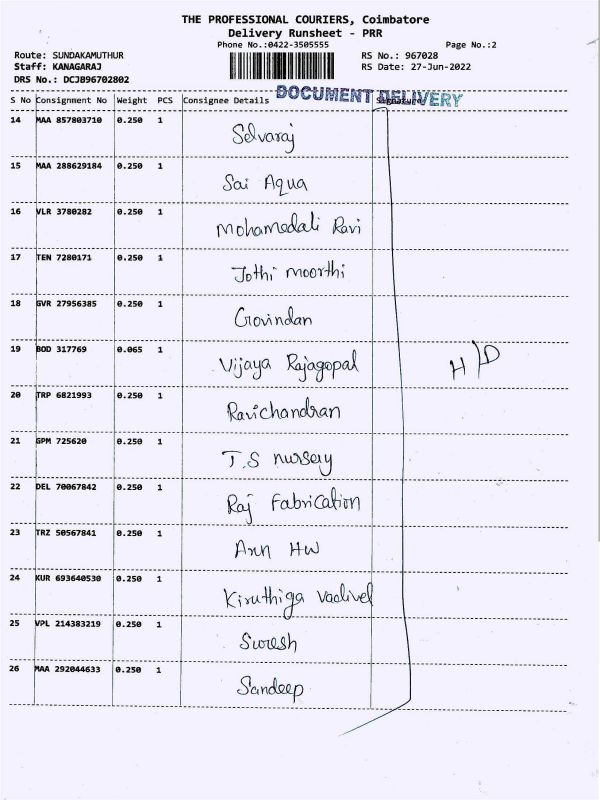 THE PROFESSIONAL COURIERS, Coimbatore
Delivery Runsheet - PRR
Phone No.:0422-3505555 Page No.:2
Route: SUNDAKAMUTHUR RS No.: 967028
Staff: KANAGARAJ RS Date: 27-Jun-2022
DRS No.: DCJB96702802
DOCUMENT DELIVERY
S No Consignment No Weight PCS Consignee Details Signature
14 MAA 857803710 0.250 1 Selvaraj
15 MAA 288629184 0.250 1 Sai Aqua
16 VLR 3780282 0.250 1 Mohamedali Ravi
17 TEN 7280171 0.250 1 Jothi moorthi
18 GVR 27956385 0.250 1 Govindan
19 BOD 317769 0.065 1 Vijaya Rajagopal H/D
20 TRP 6821993 0.250 1 Ravichandran
21 GPM 725620 0.250 1 T.S nursery
22 DEL 70067842 0.250 1 Raj Fabrication
23 TRZ 50567841 0.250 1 HW
24 KUR 693640530 0.250 1 Kiruthiga Vadivel
25 VPL 214383219 0.250 1 Suresh
26 MAA 292044633 0.250 1 Sandeep